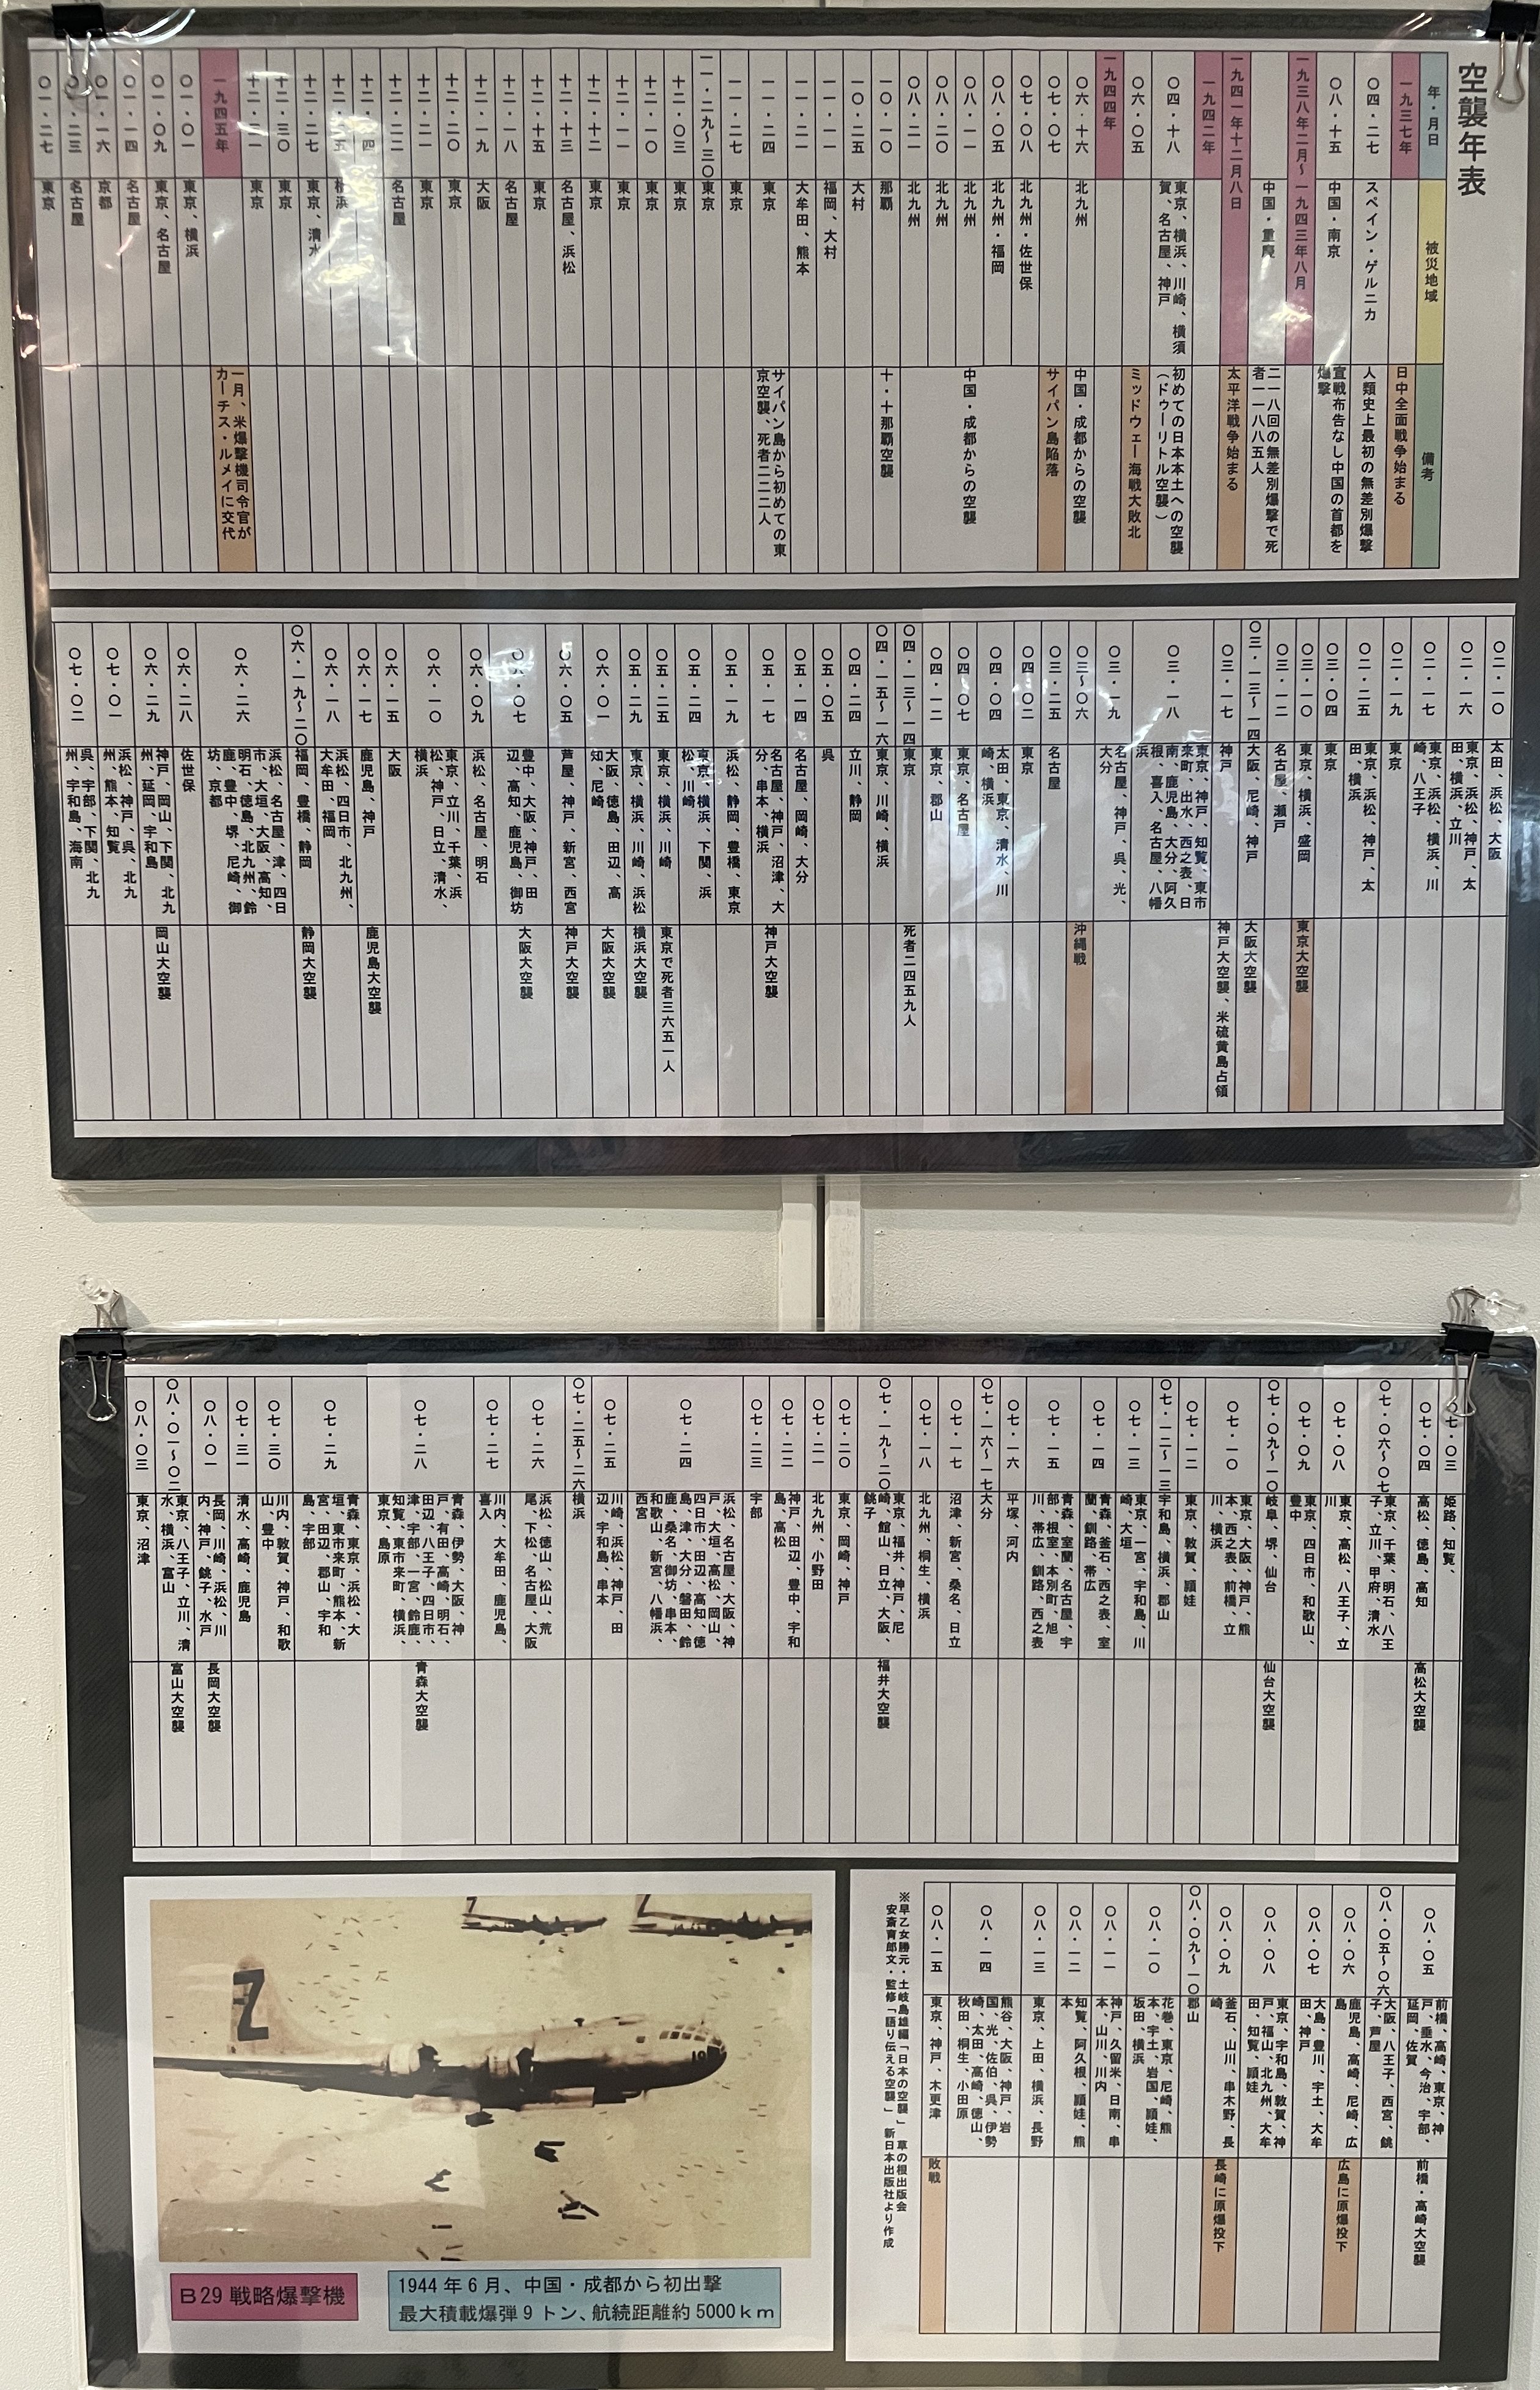 空襲年表
年・月日 被災地域 備考
一九三七年 日中全面戦争始まる
〇四・二七 スペイン・ゲルニカ 人類史上最初の無差別爆撃
〇八・十五 中国・南京 宣戦布告なし中国の首都を
爆撃
一九三八年二月～一九四三年八月
中国・重慶 二一八回の無差別爆撃で死
者一一八八五人
一九四一年十二月八日 太平洋戦争始まる
一九四二年
〇四・十八 東京、横浜、川崎、横須
賀、名古屋、神戸 初めての日本本土への空襲
（ドゥーリトル空襲）
〇六・〇五 ミッドウェー海戦大敗北
一九四四年
〇六・十六 北九州 中国・成都からの空襲
〇七・〇七 サイパン島陥落
〇七・〇八 北九州・佐世保
〇八・〇五 北九州・福岡
〇八・一一 北九州 中国・成都からの空襲
〇八・二〇 北九州
〇八・二一 北九州
一〇・一〇 那覇 十・十那覇空襲
一〇・二五 大村
一一・一一 福岡、大村
一一・二一 大牟田、熊本
一一・二四 東京 サイパン島から初めての東
京空襲、死者二二二人
一一・二七 東京
一一・二九～三〇 東京
十二・〇三 東京
十二・一〇 東京
十二・一一 東京
十二・十二 東京
十二・十三 名古屋、浜松
十二・十五 東京
十二・一八 名古屋
十二・一九 大阪
十二・二〇 東京
十二・二一 東京
十二・二二 名古屋
十二・二四 東京
十二・二五 横浜
十二・二七 東京、清水
十二・三〇 東京
十二・三一 東京
一九四五年 一月、米爆撃機司令官が
カーチス・ルメイに交代
〇一・〇一 東京、横浜
〇一・〇九 東京、名古屋
〇一・一四 名古屋
〇一・一六 京都
〇一・二三 名古屋
〇一・二七 東京
〇二・一〇 太田、浜松、大阪
〇二・一六 東京、浜松、神戸、太
田、横浜、立川
〇二・一七 東京、浜松、横浜、川
崎、八王子
〇二・一九 東京
〇二・二五 東京、浜松、神戸、太
田、横浜
〇三・〇四 東京
〇三・一〇 東京、横浜、盛岡 東京大空襲
〇三・一二 名古屋、瀬戸
〇三・一三～一四 大阪、尼崎、神戸 大阪大空襲
〇三・一七 神戸 神戸大空襲、米硫黄島占領
〇三・一八 東京、神戸、知覧、東市
来町、出水、西之表、日
南、鹿児島、大分、阿久
根、喜入、名古屋、八幡
浜
〇三・一九 名古屋、神戸、呉、光、
大分
〇三～〇六 沖縄戦
〇三・二五 名古屋
〇四・〇二 東京
〇四・〇四 太田、東京、清水、川
崎、横浜
〇四・〇七 東京、名古屋
〇四・一二 東京、郡山
〇四・一三～一四 東京 死者二四五九人
〇四・一五～一六 東京、川崎、横浜
〇四・二四 立川、静岡
〇五・〇五 呉
〇五・一四 名古屋、岡崎、大分
〇五・一七 名古屋、神戸、沼津、大
分、串本、横浜 神戸大空襲
〇五・一九 浜松、静岡、豊橋、東京
〇五・二四 東京、横浜、下関、浜
松、川崎
〇五・二五 東京、横浜、川崎 東京で死者三六五一人
〇五・二九 東京、横浜、川崎、浜松 横浜大空襲
〇六・〇一 大阪、徳島、田辺、高
知、尼崎 大阪大空襲
〇六・〇五 芦屋、神戸、新宮、西宮 神戸大空襲
〇六・〇七 豊中、大阪、神戸、田
辺、高知、鹿児島、御坊 大阪大空襲
〇六・〇九 浜松、名古屋、明石
〇六・一〇 東京、立川、千葉、浜
松、神戸、日立、清水、
横浜
〇六・一五 大阪
〇六・一七 鹿児島、神戸 鹿児島大空襲
〇六・一八 浜松、四日市、北九州、
大牟田、福岡
〇六・一九～二〇 福岡、豊橋、静岡 静岡大空襲
〇六・二六 浜松、名古屋、津、四日
市、大垣、大阪、高知、
明石、徳島、北九州、鈴
鹿、豊中、堺、尼崎、御
坊、京都
〇六・二八 佐世保
〇六・二九 神戸、岡山、下関、北九
州、延岡、宇和島 岡山大空襲
〇七・〇一 浜松、神戸、呉、北九
州、熊本、知覧
〇七・〇二 呉、宇部、下関、北九
州、宇和島、海南
〇七・〇三 姫路、知覧、
〇七・〇四 高松、徳島、高知 高松大空襲
〇七・〇六～〇七 東京、千葉、明石、八王
子、立川、甲府、清水
〇七・〇八 東京、高松、八王子、立
川
〇七・〇九 東京、四日市、和歌山、
豊中
〇七・〇九～一〇 岐阜、堺、仙台 仙台大空襲
〇七・一〇 東京、大阪、神戸、熊
本、西之表、前橋、立
川、横浜
〇七・一二 東京、敦賀、頴娃
〇七・一二～一三 宇和島、横浜、郡山
〇七・一三 東京、一宮、宇和島、川
崎、大垣
〇七・一四 青森、釜石、西之表、室
蘭、釧路、帯広
〇七・一五 青森、室蘭、名古屋、宇
部、根室、本別町、旭
川、帯広、釧路、西之表
〇七・一六 平塚、河内
〇七・一六～一七 大分
〇七・一七 沼津、新宮、桑名、日立
〇七・一八 北九州、桐生、横浜
〇七・一九～二〇 東京、福井、神戸、尼
崎、館山、日立、大阪、
銚子 福井大空襲
〇七・二〇 東京、岡崎、神戸
〇七・二一 北九州、小野田
〇七・二二 神戸、田辺、豊中、宇和
島、高松
〇七・二三 宇部
〇七・二四 浜松、名古屋、大阪、神
戸、大垣、高松、岡山、
四日市、田辺、高知、徳
島、津、大分、磐田、鈴
鹿、桑名、御坊、串本、
和歌山、新宮、八幡浜、
西宮
〇七・二五 川崎、浜松、神戸、田
辺、宇和島、串本
〇七・二五～二六 横浜
〇七・二六 浜松、徳山、松山、荒
尾、下松、名古屋、大阪
〇七・二七 川内、大牟田、鹿児島、
喜入
〇七・二八 青森、伊勢、大阪、神
戸、有田、高崎、明石、
田辺、八王子、四日市、
津、宇部、一宮、鈴鹿、
知覧、東市来町、横浜、
東京、島原 青森大空襲
〇七・二九 青森、東京、浜松、大
垣、東市来町、熊本、新
宮、田辺、郡山、宇和
島、宇部
〇七・三〇 川内、敦賀、神戸、和歌
山、豊中
〇七・三一 清水、高崎、鹿児島
〇八・〇一 長岡、川崎、浜松、川
内、神戸、銚子、水戸 長岡大空襲
〇八・〇一～〇二 東京、八王子、立川、清
水、横浜、富山 富山大空襲
〇八・〇三 東京、沼津
〇八・〇五 前橋、高崎、東京、神
戸、垂水、今治、宇部、
延岡、佐賀 前橋・高崎大空襲
〇八・〇五～〇六 大阪、八王子、西宮、銚
子、芦屋
〇八・〇六 鹿児島、高崎、尼崎、広
島 広島に原爆投下
〇八・〇七 大島、豊川、宇土、大牟
田、神戸
〇八・〇八 東京、宇和島、敦賀、神
戸、福山、北九州、大牟
田、知覧、頴娃
〇八・〇九 釜石、山川、串木野、長
崎 長崎に原爆投下
〇八・〇九～一〇 郡山
〇八・一〇 花巻、東京、尼崎、熊
本、宇土、岩国、頴娃、
坂田、横浜
〇八・一一 神戸、久留米、日南、串
本、山川、川内
〇八・一二 知覧、阿久根、頴娃、熊
本
〇八・一三 東京、上田、横浜、長野
〇八・一四 熊谷、大阪、神戸、岩
国、光、佐伯、呉、伊勢
崎、太田、高崎、徳山、
秋田、桐生、小田原
〇八・一五 東京、神戸、木更津 敗戦
※早乙女勝元・土岐島雄編「日本の空襲」 草の根出版会
安斎育郎文・監修「語り伝える空襲」 新日本出版社より作成
Z
Z
Z
B29戦略爆撃機
1944年6月、中国・成都から初出撃
最大積載爆弾9トン、航続距離約5000km